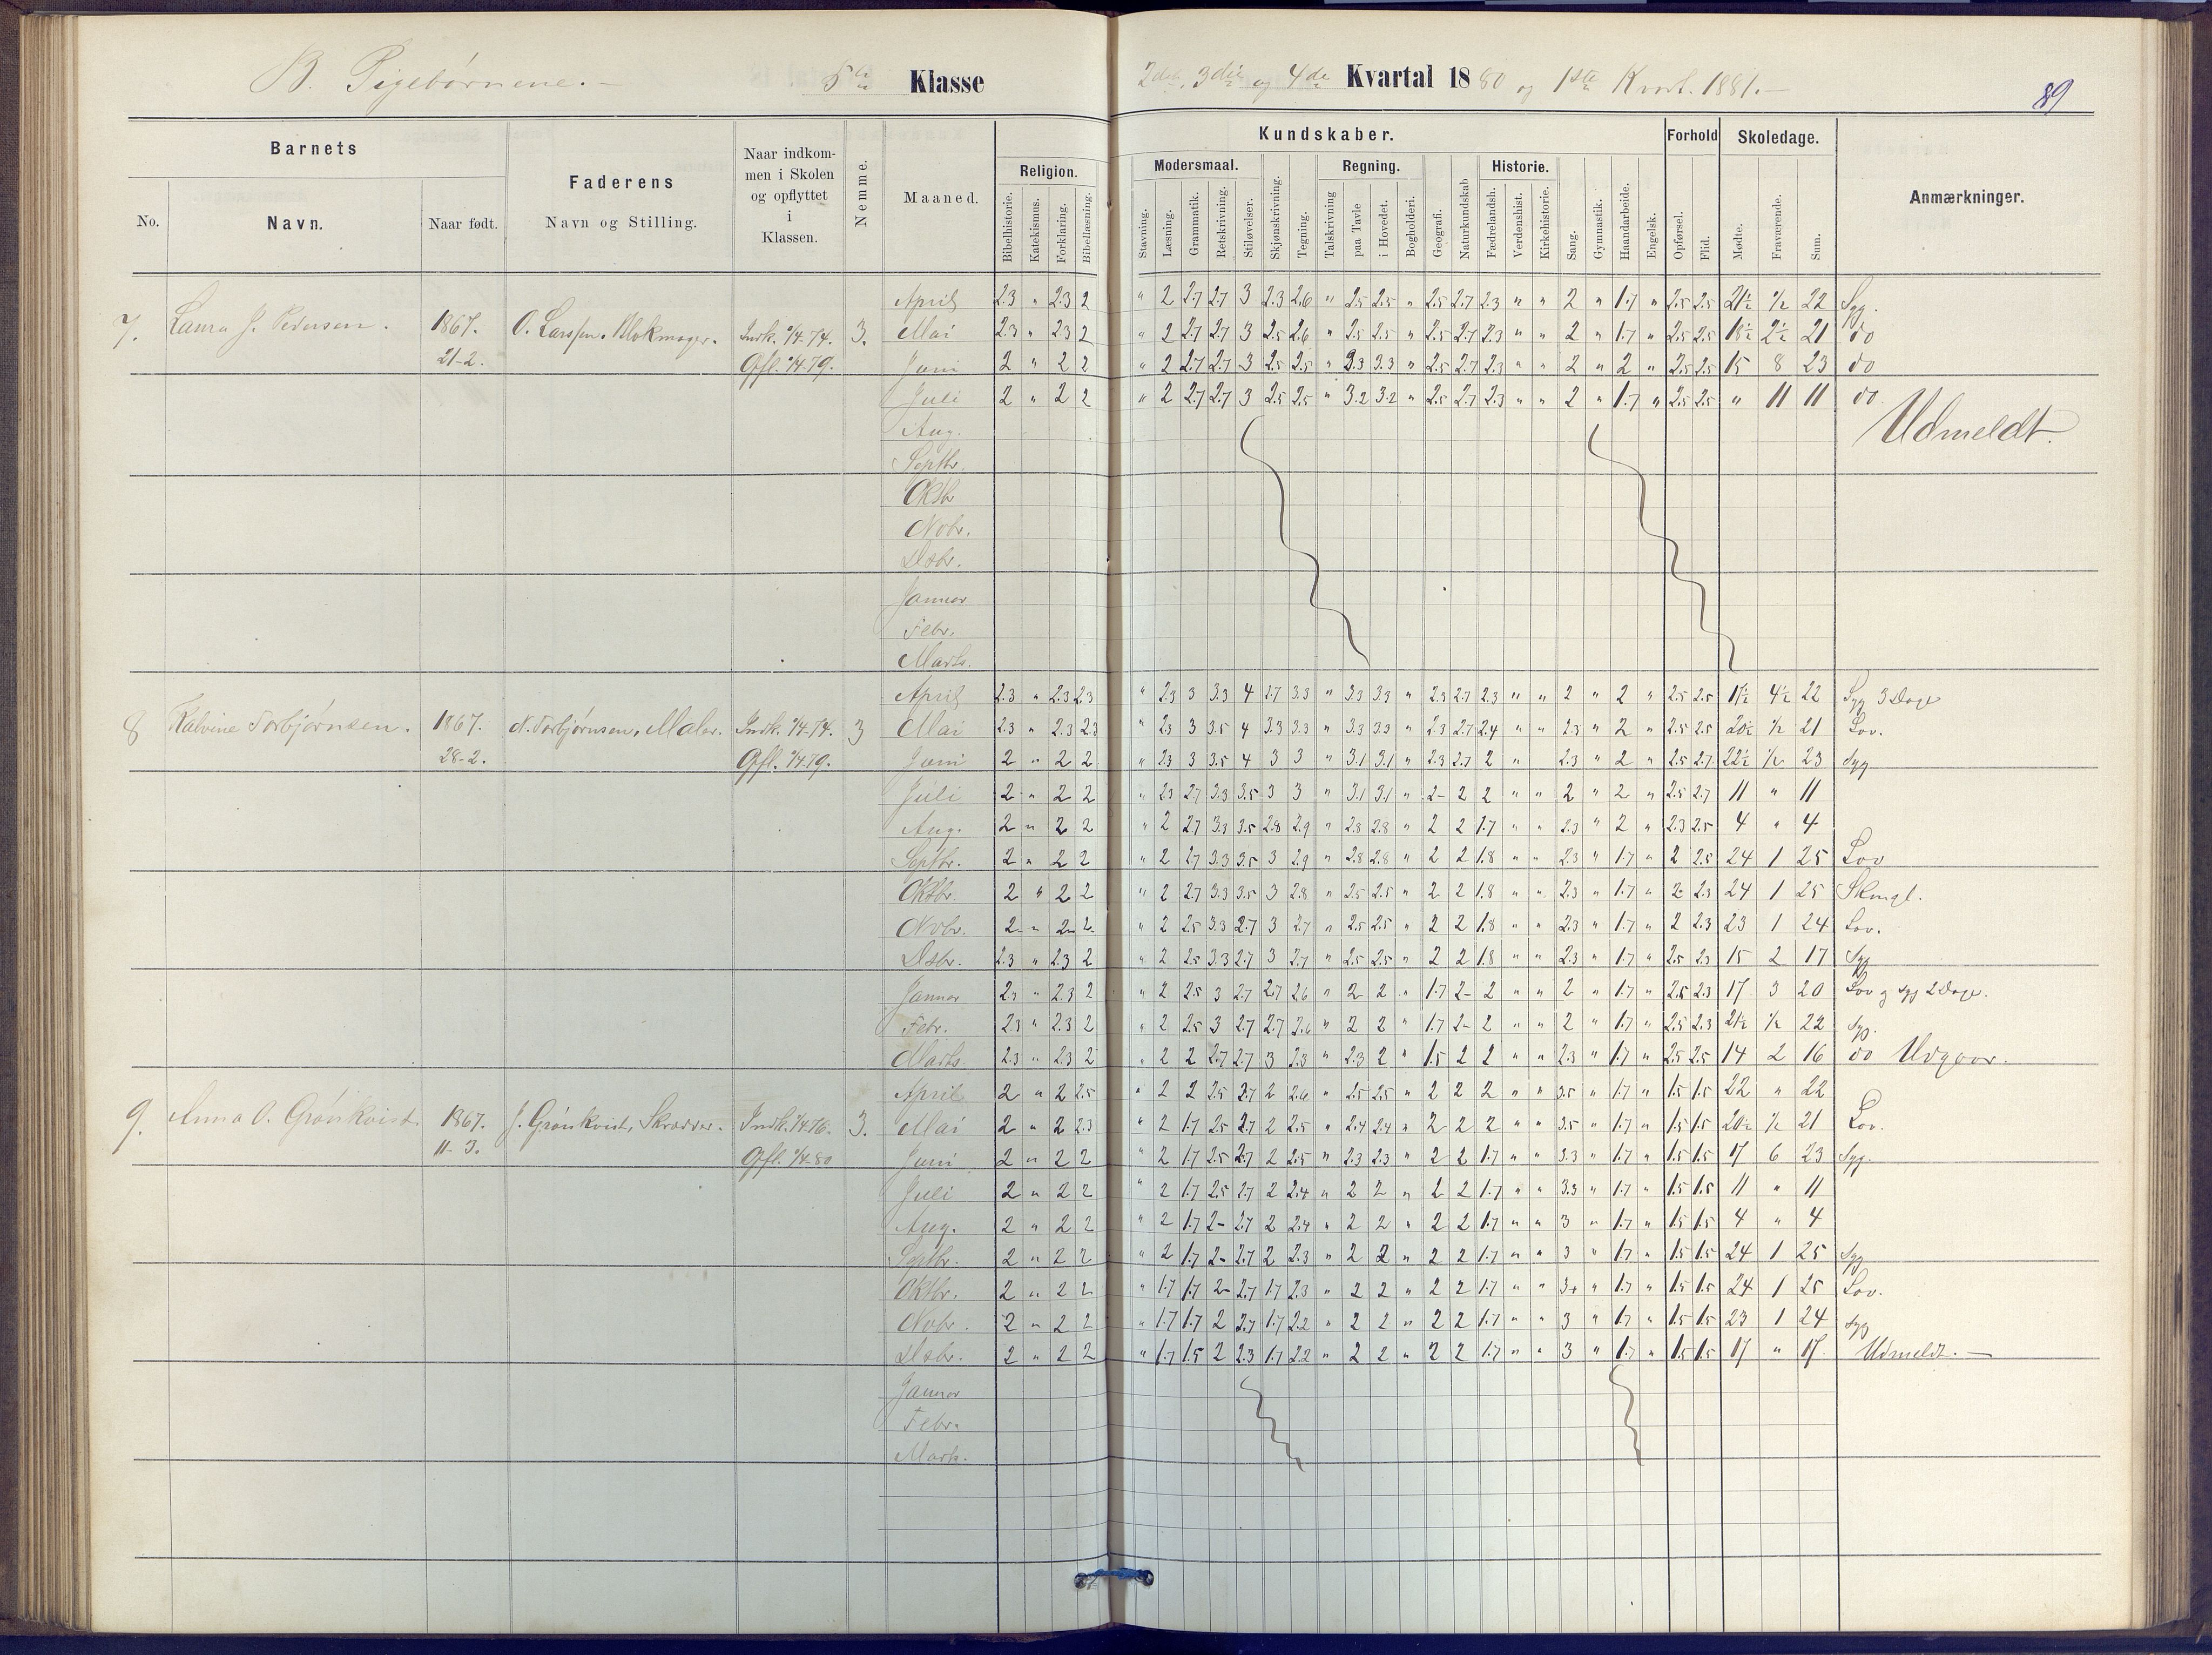 B. Pigebørnene. — 5te Klasse
2det, 3die og 4de Kvartal 1880 og 1ste Kvart. 1881. —
89
Barnets
No.
Navn.
Naar født.
Faderens
Navn og Stilling.
Naar indkom-
men i Skolen
og opflyttet
i
Klassen.
Nemme.
Maaned.
Kundskaber.
Religion.
Bibelhistorie.
Katekismus.
Forklaring.
Bibellæsning.
Modersmaal.
Stavning.
Læsning.
Grammatik.
Retskrivning.
Stiløvelser.
Skjønskrivning.
Tegning.
Regning.
Talskrivning
paa Tavle
i Hovedet.
Bogholderi.
Geografi.
Naturkundskab
Historie.
Fædrelandsh.
Verdenshist.
Kirkehistorie.
Sang.
Gymnastik.
Haandarbeide.
Engelsk.
Forhold
Opførsel.
Flid.
Skoledage.
Mødte.
Fraværende.
Sum.
Anmærkninger.
April 2.3 " 2.3 2 " 2 2.7 2.7 3 2.3 2.6 " 2.5 2.5 " 2.5 2.7 2.3 " " 2 " 1.7 " 2.5 2.5 21½ ½ 22 Syg.
7. Laura J. Pedersen. 1867. O. Larssen. Blokmager. Indk. 1/4-74. 3. Mai 2.3 " 2.3 2 " 2 2.7 2.7 3 2.5 2.6 " 2.5 2.5 " 2.5 2.7 2.3 " " 2 " 1.7 " 2.5 2.5 18½ 2½ 21 do
21-2. Opfl. 1/4 79. Juni 2 " 2 2 " 2 2.7 2.7 3 2.5 2.5 " 3.3 3.3 " 2.5 2.7 2.3 " " 2 " 2 " 2.5 2.5 15 8 23 do
Juli 2 " 2 2 " 2 2.7 2.7 3 2.5 2.5 " 3.2 3.2 " 2.5 2.7 2.3 " " 2 " 1.7 " 2.5 2.5 " 11 11 do.
Aug. Udmeldt.
Septbr.
Oktbr
Novbr.
Desbr.
Januar
Febr.
Marts.
April 2.3 " 2.3 2.3 " 2.3 3 3.3 4 2.7 3.3 " 3.3 3.3 " 2.3 2.7 2.3 " " 2 " 2 " 2.5 2.5 17½ 4½ 22 Syg 3 Dage
8 Kalvine Torbjørnsen. 1867. N. Torbjørnsen, Maler. Indk. 1/4-74. 3 Mai 2.3 " 2.3 2.3 " 2.3 3 3.5 4 3.3 3.3 " 3.3 3.3 " 2.3 2.7 2.4 " " 2.3 " 2 " 2.5 2.5 20½ ½ 21 Lov.
28-2. Opfl. 1/4 79. Juni 2 " 2 2 " 2.3 3 3.5 4 3 3 " 3.1 3.1 " 2.3 2.7 2 " 2.3 " 2 " 2.5 2.7 22½ ½ 23 Syg
Juli 2 " 2 2 " 2.3 2.7 3.3 3.5 3 3 " 3.1 3.1 " 2- 2 2 " " 2 " 2 " 2.5 2.7 11 " 11
Aug. 2 " 2 2 " 2 2.7 3.3 3.5 2.8 2.9 " 2.8 2.8 " 2 2 1.7 " " 2.3 " 2 " 2.3 2.5 4 " 4
Septbr. 2 " 2 2 " 2 2.7 3.3 3.5 3 2.9 " 2.8 2.8 " 2 2 1.8 " " 2.3 " 1.7 " 2 2.5 24 1 25 Lov
Oktbr. 2 " 2 2 " 2 2.7 3.3 3.5 3 2.8 " 2.5 2.5 " 2 2 1.8 " " 2.3 " 1.7 " 2 2.3 24 1 25 Skmgl.
Novbr. 2 " 2 2 " 2 2.5 3.3 2.7 3 2.7 " 2.5 2.5 " 2 2 1.8 " " 2.3 " 1.7 " 2 2.3 23 1 24 Lov.
Desbr. 2.3 " 2.3 2 " 2 2.5 3.3 2.7 3 2.7 " 2.5 2.5 " 2 2 1.8 " " 2.3 " 1.7 " 2.5 2.3 15 2 17 Syg
Januar 2.3 " 2.3 2 " 2 2.5 3 2.7 2.7 2.6 " 2 2 " 1.7 2- 2 " " 2 " 1.7 " 2.5 2.3 17 3 20 Lov og syg 2 Dage.
Febr. 2.3 " 2.3 2 " 2 2.5 3 2.7 2.7 2.6 " 2 2 " 1.7 2- 2 " " 2 " 1.7 " 2.5 2.3 21½ ½ 22 Syg.
Marts. 2.3 " 2.3 2 " 2 2 2.7 2.7 3 2.3 " 2.3 2 " 1.5 2 2 " " 2.3 " 1.7 " 2.5 2.5 14 2 16 do Udgaar.
April 2 " 2 2.5 " 2 2 2.5 2.7 2 2.6 " 2.5 2.5 " 2 2 2 " " 3.5 " 1.7 " 1.5 1.5 22 " 22
9. Anna O. Grönkvist. 1867. J. Grönkvist, Skrædder. Indk. 1/4-76. 3. Mai 2 " 2 2.3 " 2 1.7 2.5 2.7 2 2.5 " 2.4 2.4 " 2 2 2 " " 3.5 " 1.7 " 1.5 1.5 20½ ½ 21 Lov.
11-3. Opfl. 1/4-80 Juni 2 " 2 2 " 2 1.7 2.5 2.7 2 2.5 " 2.3 2.3 " 2 2 1.7 " " 3.3 " 1.7 " 1.5 1.5 17 6 23 Syg.
Juli 2 " 2 2 " 2 1.7 2.5 2.7 2 2.4 " 2 2 " 2 2 1.7 " " 3.3 " 1.7 " 1.5 1.5 11 " 11
Aug. 2 " 2 2 " 2 1.7 2- 2.7 2 2.4 " 2 2 " 2 2 1.7 " " 3 " 1.7 " 1.5 1.5 4 " 4
Septbr. 2 " 2 2 " 2 1.7 2- 2.7 2 2.3 " 2 2 " 2 2 1.7 " " 3 " 1.7 " 1.5 1.5 24 1 25 Syg
Oktbr. 2 " 2 2 " 1.7 1.7 2- 2.7 1.7 2.3 " 2 2 " 2 2 1.7 " " 3+ " 1.7 " 1.5 1.5 24 1 25 Lov.
Novbr. 2 " 2 2 " 1.7 1.7 2 2.7 1.7 2.2 " 2 2 " 2 2 1.7 " " 3 " 1.7 " 1.5 1.5 23 1 24 Syg
Desbr. 2 " 2 2 " 1.7 1.5 2 2.3 1.7 2.2 " 2 2 " 2 2 1.7 " " 3 " 1.7 " 1.5 1.5 17 " 17. Udmeldt. —
Januar
Febr.
Marts.